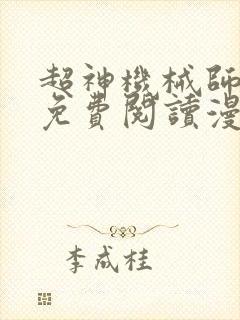 超神機械師
免費閱讀漫
李成桂